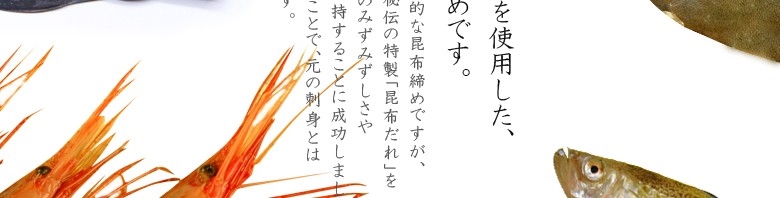 を使用した、
めです。
的な昆布締めですが、
秘伝の特製「昆布だれ」を
のみずみずしさや
持することに成功しまし
ことで、元の刺身とは
す。